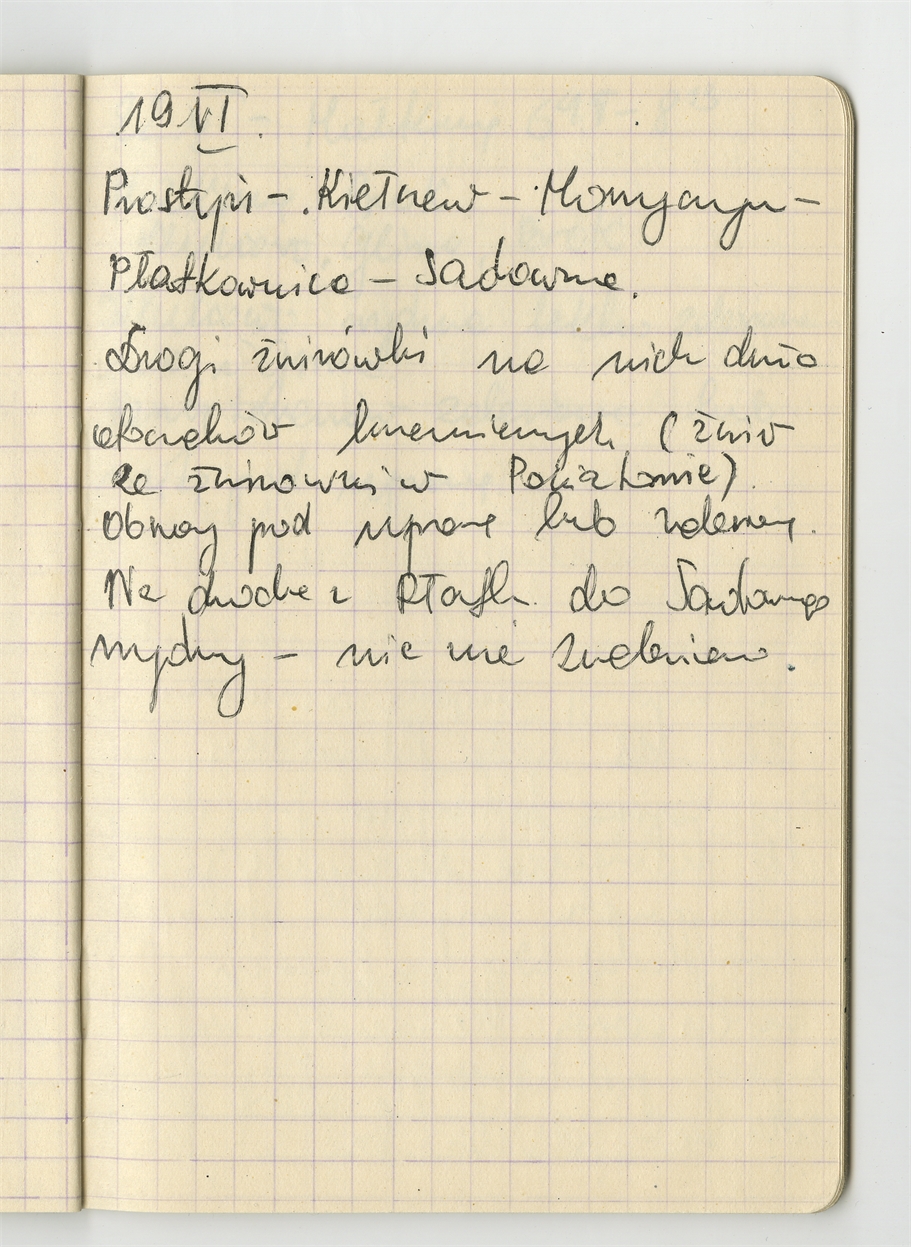 19 VI.
Prostyń - Kiełczew - Morzyczyn -
Płatkownica - Sadowne.
Drogi żwirówki na nich dużo
okruchów krzemiennych (żwir
ze żwirowni w
Obszary pod uprawę lub zalesiony.
Na drodze z Płatk. do Sadownego
wydmy - nic nie znaleziono.